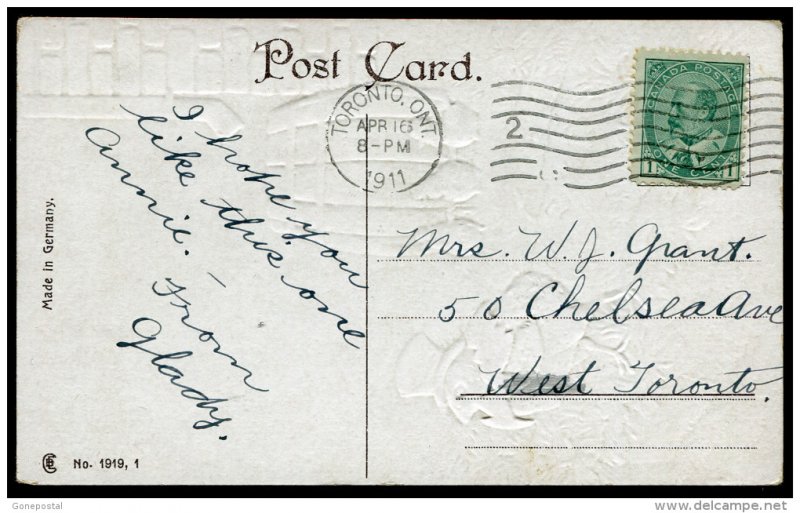 Post Card.
TORONTO, ONT.
APR 16
8-PM
1911
2
CANADA POSTAGE
1 1
ONE CENT
I hope you
like this one
Annie. –
From
Glady.
Mrs. W. J. Grant.
50 Chelsea Ave
West Toronto.
Made in Germany.
No. 1919, 1
Gonepostal
delcampe.net